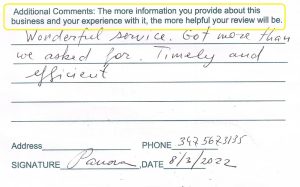 Additional Comments: The more information you provide about this
business and your experience with it, the more helpful your review will be.
Wonderful service. Got more than
we asked for. Timely and
efficient
Address PHONE 3475673135
SIGNATURE Panova ,DATE 8/3/2022